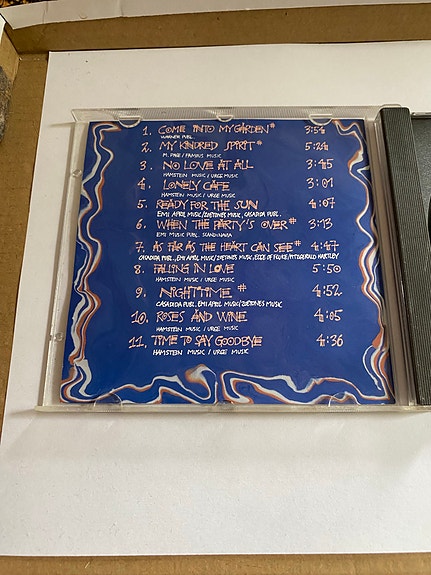 1. COME INTO MY GARDEN* 3:54
WARNER PUBL.
2. MY KINDRED SPIRIT* 5:24
M. PAGE / FAMOUS MUSIC
3. NO LOVE AT ALL 3:45
HAMSTEIN MUSIC / URGE MUSIC
4. LONELY CAFE 3:01
HAMSTEIN MUSIC / URGE MUSIC
5. READY FOR THE SUN 4:07
EMI APRIL MUSIC/ZIGTONES MUSIC, CASADIDA PUBL.
6. WHEN THE PARTY'S OVER* 3:13
EMI MUSIC PUBL. SCANDINAVIA
7. AS FAR AS THE HEART CAN SEE* 4:47
CASADIDA PUBL., EMI APRIL MUSIC/ZIGTONES MUSIC, HARTLEY
8. FALLING IN LOVE 5:50
HAMSTEIN MUSIC / URGE MUSIC
9. NIGHTTIME * 4:52
CASADIDA PUBL. EMI APRIL MUSIC/ZIGTONES MUSIC
10. ROSES AND WINE 4:05
HAMSTEIN MUSIC / URGE MUSIC
11. TIME TO SAY GOODBYE 4:36
HAMSTEIN MUSIC / URGE MUSIC